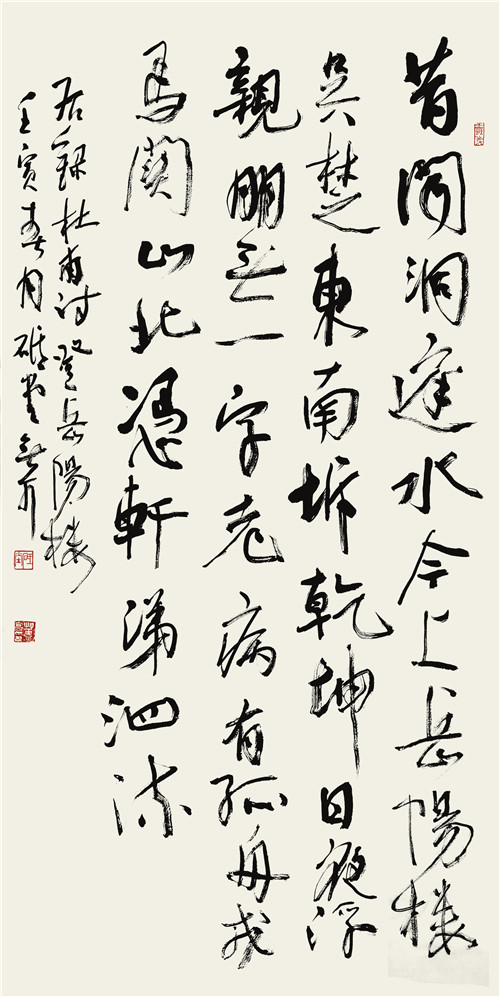 昔闻洞庭水今上岳陽楼
吴楚東南坼乾坤日夜浮
親朋无一字老病有孤舟戎
馬關山北憑軒涕泗流
右録杜甫诗登岳陽楼
壬寅春月